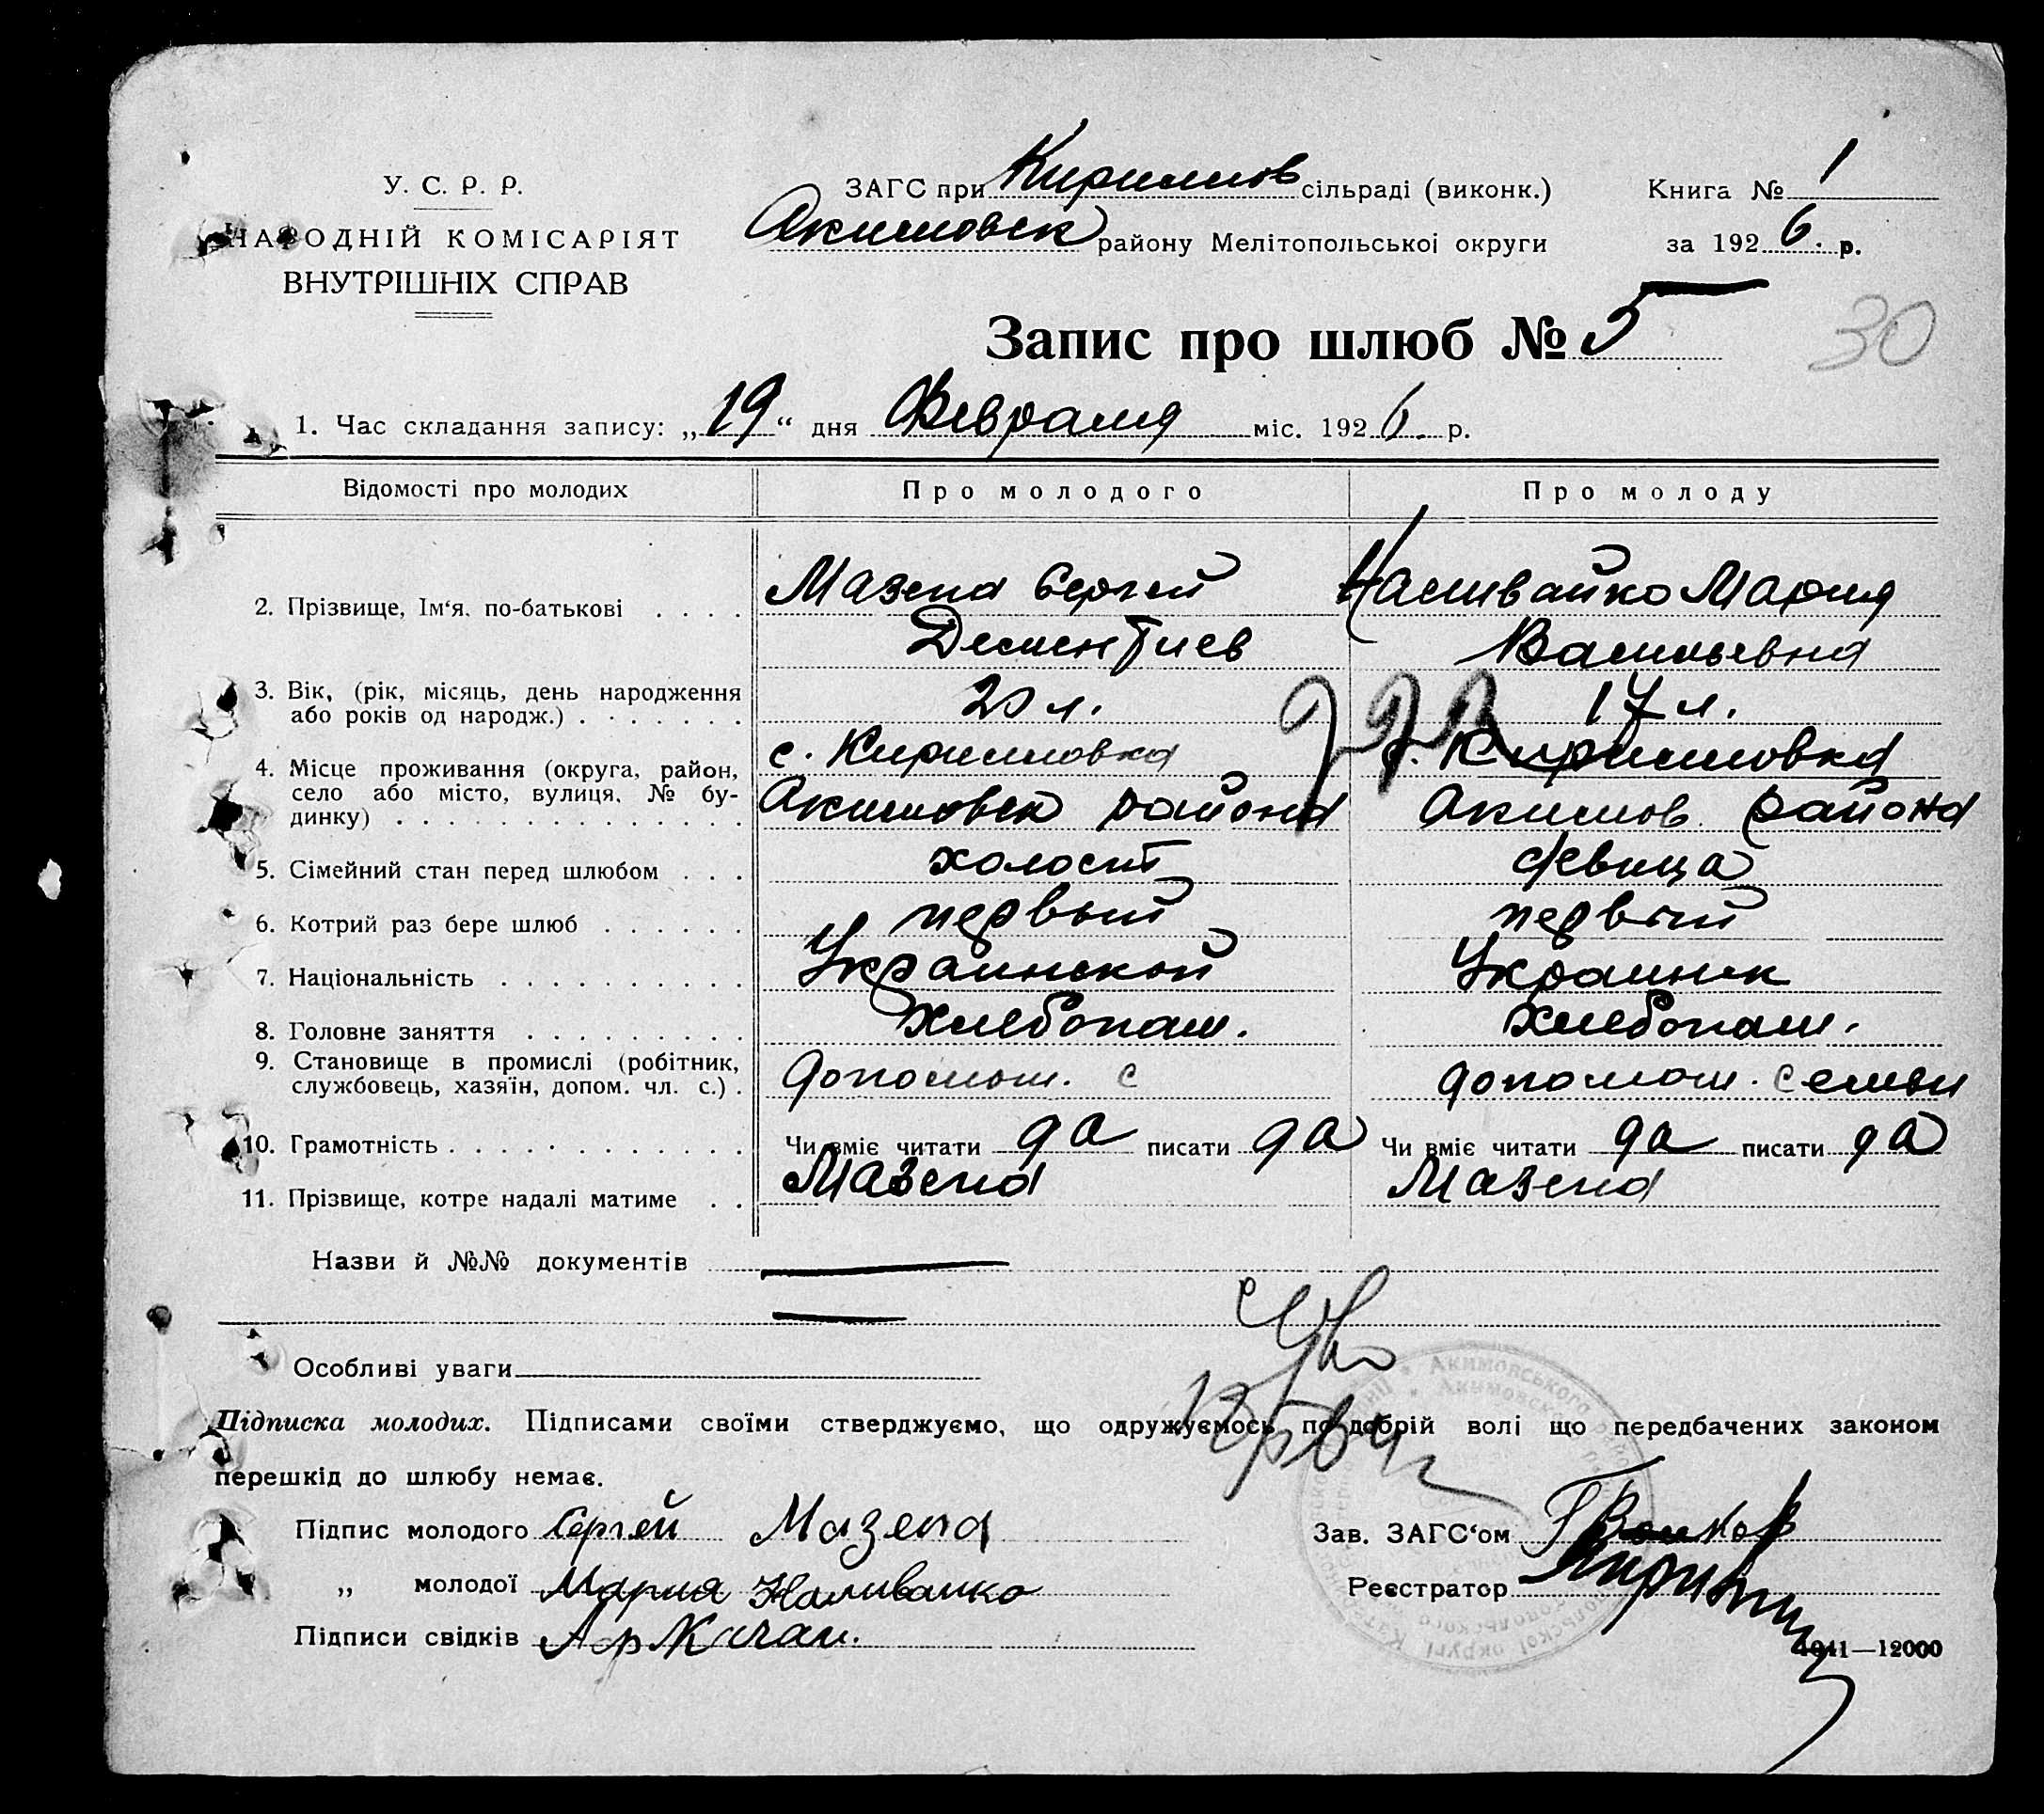 У. С. Р. Р.
НАРОДНІЙ КОМІСАРІЯТ
ВНУТРІШНІХ СПРАВ
ЗАГС при Кирилов сільраді (виконк.)
Акимовск району Мелітопольської округи
Книга № 1
за 1926. р.
Запис про шлюб № 5
30
1. Час складання запису: „19“ дня Февраля міс. 1926. р.
Відомості про молодих
Про молодого
Про молоду
2. Прізвище, Ім'я. по-батькові . . . .
Мазепа Сергей
Дементиев
Наливайко Мария
Васильевна
3. Вік, (рік, місяць, день народження
або років од народж.) . . . . . . .
20 л.
17 л.
4. Місце проживання (округа, район,
село або місто, вулиця, № бу-
динку) . . . . . . . . . . . . . .
с. Кирилловка
Акимовск района
с. Кирилловка
Акимов. района
5. Сімейний стан перед шлюбом . . .
холост
девица
6. Котрий раз бере шлюб . . . . . .
первый
первый
7. Національність . . . . . . . . . .
Украинской
Украинк
8. Головне заняття . . . . . . . . .
Хлебопаш.
Хлебопаш.
9. Становище в промислі (робітник,
службовець, хазяїн, допом. чл. с.) .
допомош. с
допомош. семьи
10. Грамотність . . . . . . . . . . . .
Чи вміє читати да писати да
Чи вміє читати да писати да
11. Прізвище, котре надалі матиме . .
Мазепа
Мазепа
Назви й №№ документів
Особливі уваги
Підписка молодих. Підписами своїми стверджуємо, що одружуємось по добрій волі що передбачених законом
перешкід до шлюбу немає.
Підпис молодого Сергей Мазепа
„ молодої Мария Наливайко
Підписи свідків
Зав. ЗАГС'ом
Реєстратор
4941—12000